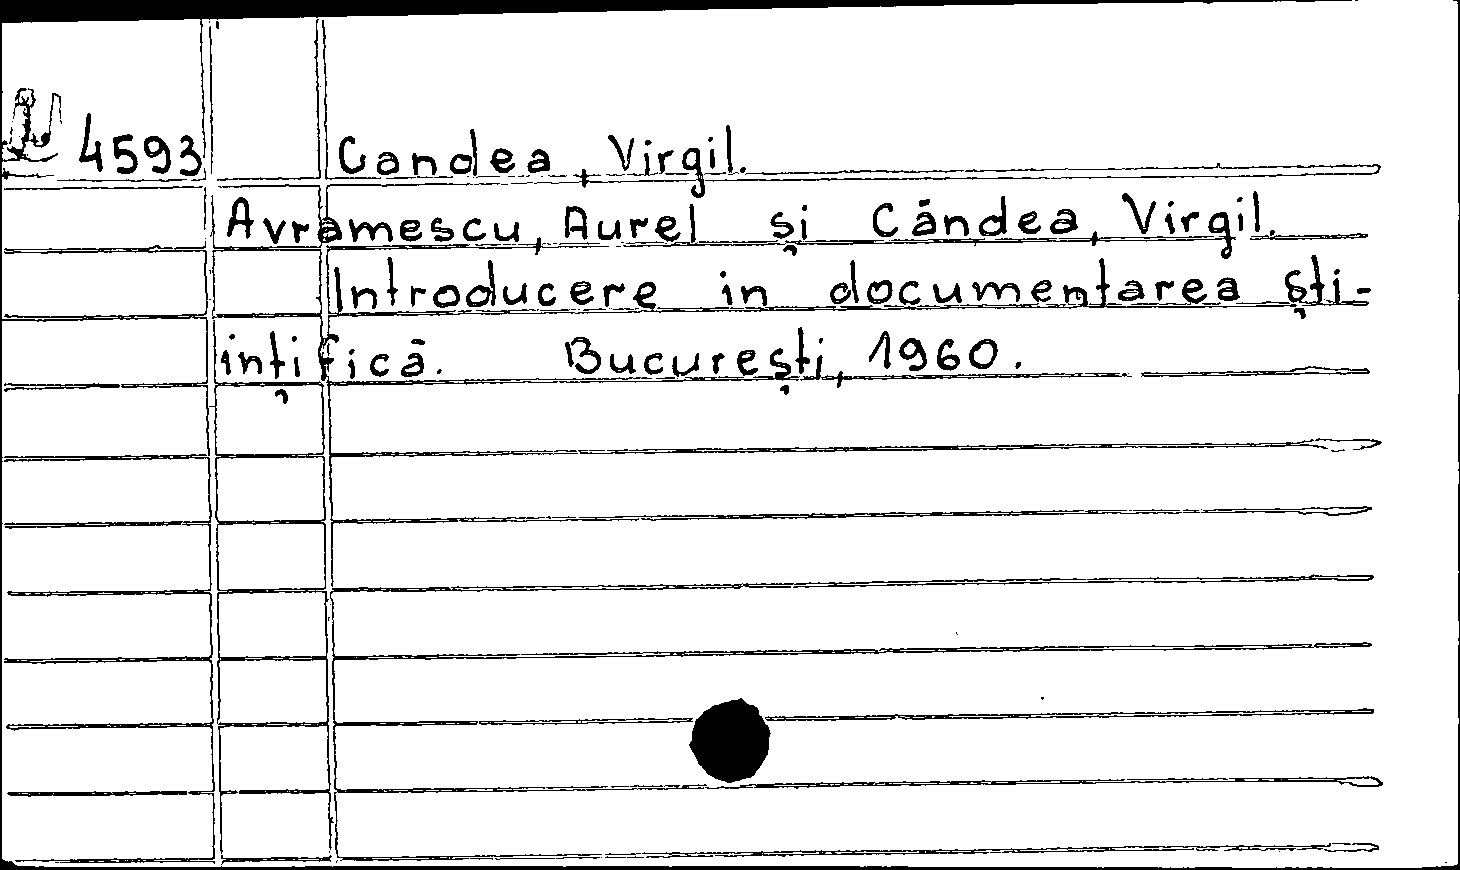 4593 Candea, Virgil.
Avramescu, Aurel și Cāndea, Virgil.
Introducere in documentarea ști-
ințifică. București, 1960.